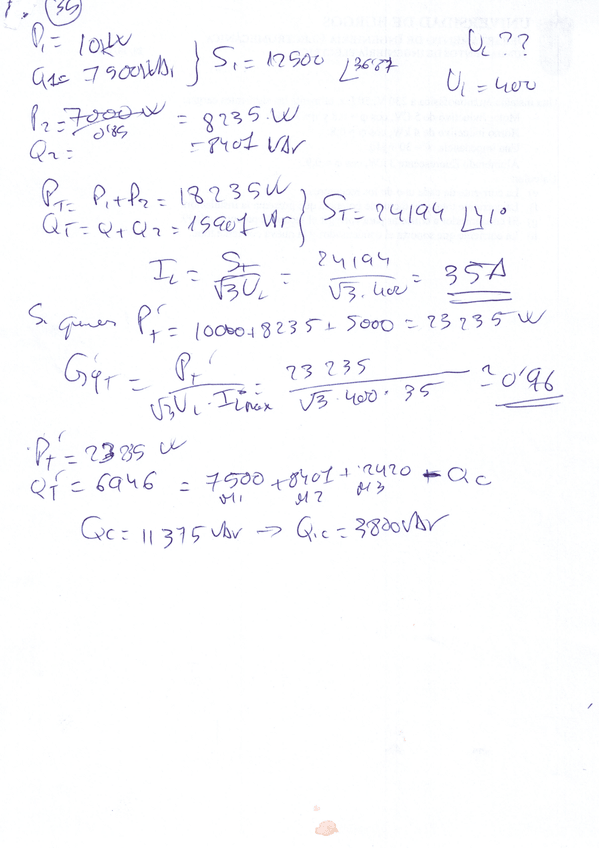 1. (35)
P₁ = 10kW
Q₁ = 7500VAr } S₁ = 12500 ∠36'87
U_L ??
U_L = 400
P₂ = 7000 W / 0'85 = 8235 W
Q₂ = = 8401 VAr
P_T = P₁ + P₂ = 18235W
Q_T = Q₁ + Q₂ = 15901 VAr } S_T = 24194 ∠41°
I_L = S_T / √3 U_L = 24194 / √3 · 400 = 35A
Si P_T' = 10000 + 8235 + 5000 = 23235 W
Cosφ_T' = P_T' / √3 U_L · I_Lmax = 23235 / √3 · 400 · 35 ≃ 0'96
P_T' = 23235 W
Q_T' = 6946 = 7500 + 8401 + 2420 - Q_C
M1 M2 M3
Q_C = 11375 VAr → Q_1C = 3800 VAr